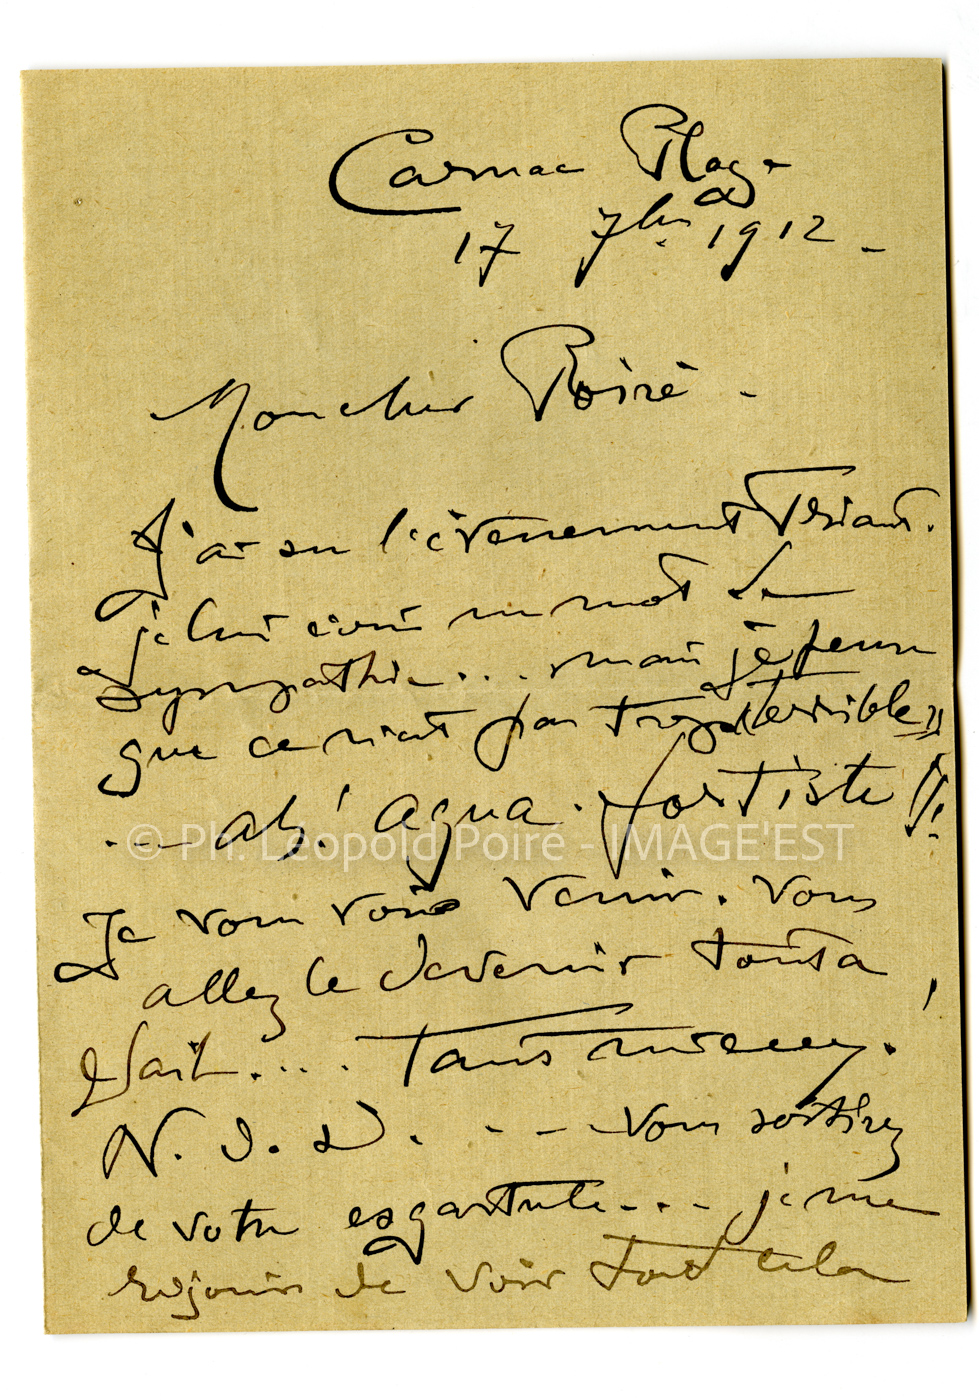 Carnac Plage
17 7bre 1912 -
Mon cher Poiré -
J'ai su l'évènement Friant.
je lui écris un mot de
sympathie... mais je pense
que ce n'est pas trop "terrible"
... ah! aqua-fortiste !!
© Ph. Léopold Poiré - IMAGE'EST
Je vous vois venir. Vous
allez le devenir tout à
fait.... Tant mieux !
N. d. D. . - - - vous sortirez
de votre ... je me
réjouis de voir tout cela